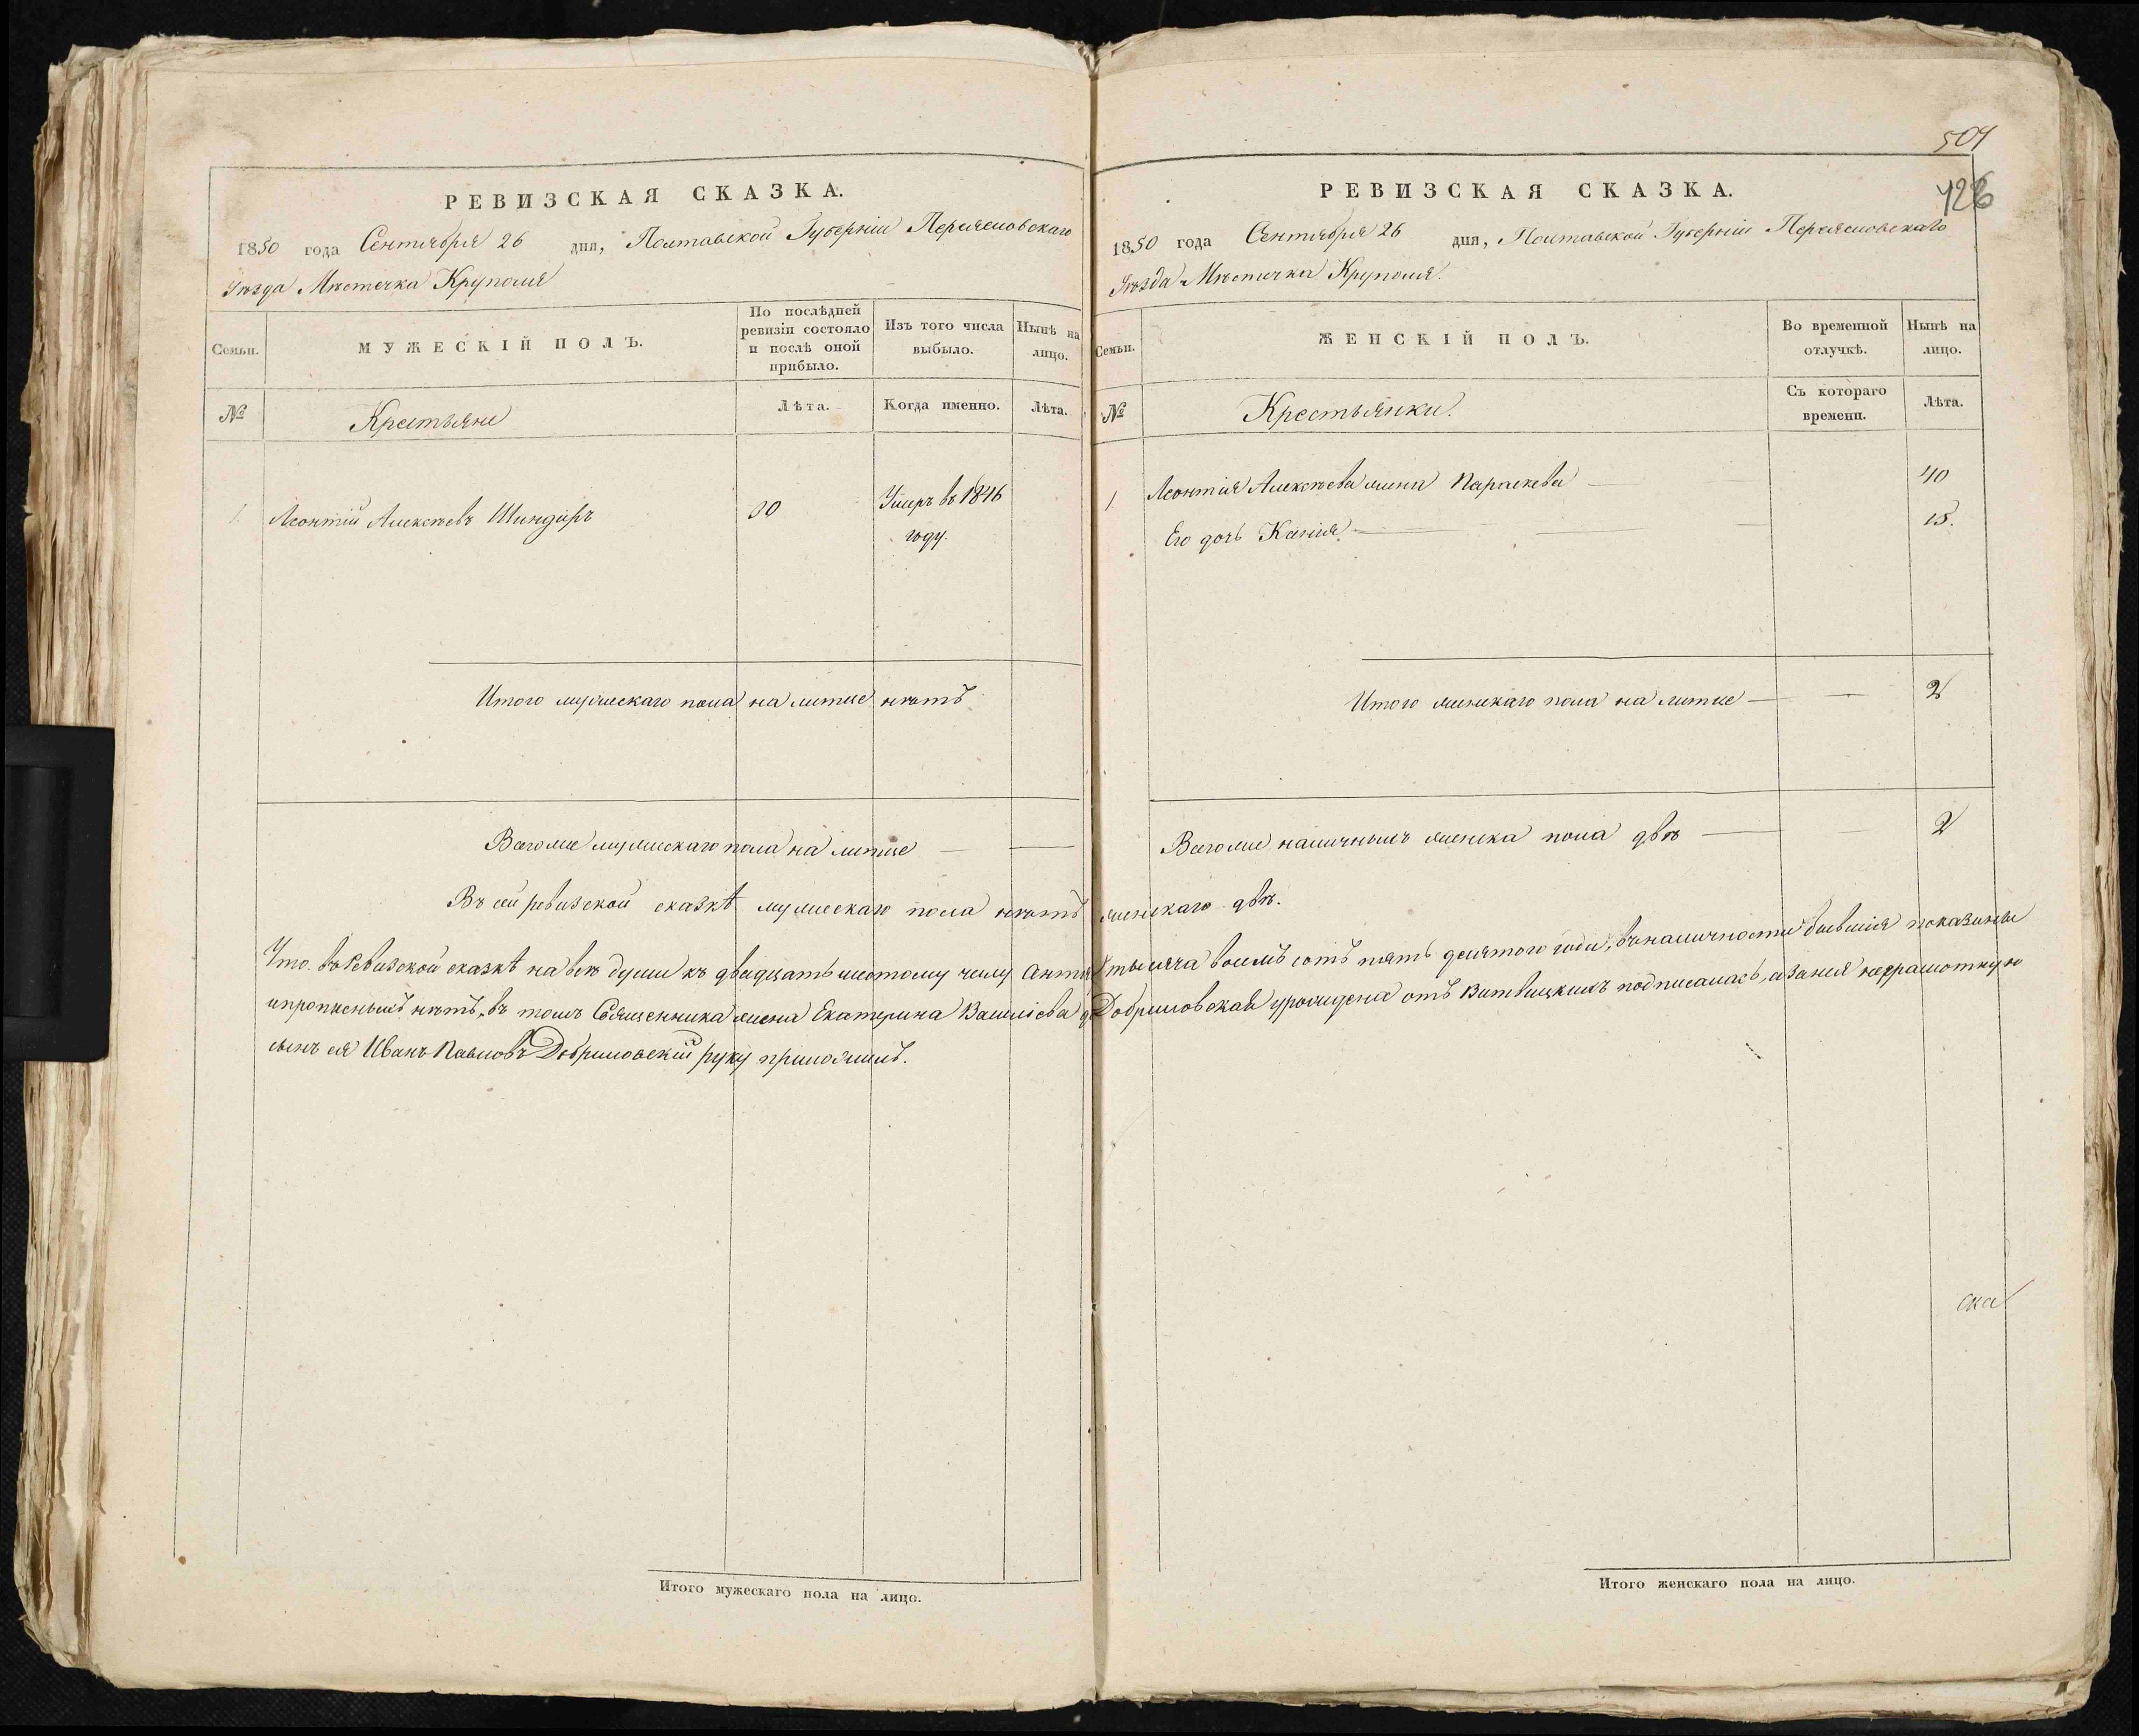 РЕВИЗСКАЯ СКАЗКА.
1850 года Сентября 26 дня, Полтавской Губерніи Переясловскаго
Уѣзда Мѣстечка Круполя
Семьи. МУЖЕСКІЙ ПОЛЪ. По послѣдней ревизіи состояло и послѣ оной прибыло. Изъ того числа выбыло. Нынѣ на лицо.
№ Крестьяне Лѣта. Когда именно. Лѣта.
1. Леонтій Алексѣевъ Шиндиръ 30 Умеръ въ 1846
году.
Итого мужескаго пола на литце нѣтъ
Всего же мужескаго пола на литце
Въ сей ревизской сказкѣ мужескаго пола нѣтъ женскаго двѣ.
Что въ Ревизской сказкѣ на всѣ души къ двадцать шестому числу тысяча восемь сотъ пять десятого года, въ наличности бывшія показанны
и прописныхъ нѣтъ, въ томъ Священника жена Екатерина Василіева Добриловская урожидена отъ Витвицкихъ подписалась, а за нея неграмотную
сынъ ея Иванъ Павловъ Добриловскій руку приложилъ.
Итого мужескаго пола на лицо.
504
426
РЕВИЗСКАЯ СКАЗКА.
1850 года Сентября 26 дня, Полтавской Губерніи Переясловскаго
Уѣзда Мѣстечка Круполя.
Семьи. ЖЕНСКІЙ ПОЛЪ. Во временной отлучкѣ. Нынѣ на лицо.
№ Крестьянки. Съ котораго времени. Лѣта.
1 Леонтія Алексѣева жена Параскева 40
Его дочь Ксенія 15.
Итого женскаго пола на литце 2
Всего же наличныхъ женска пола двѣ 2
ска
Итого женскаго пола на лицо.